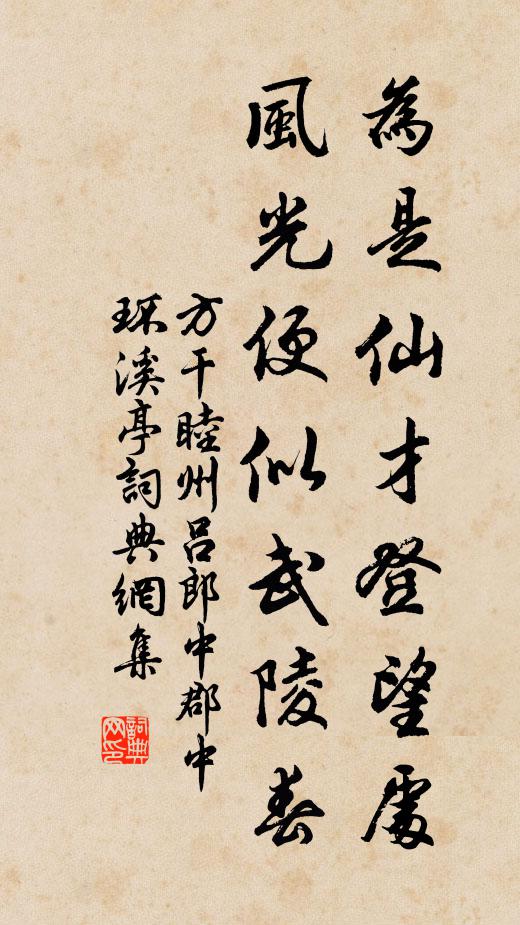 為是仙才登望處
風光便似武陵春
方干睦州呂郎中郡中
環溪亭詞典網集
詞典網印